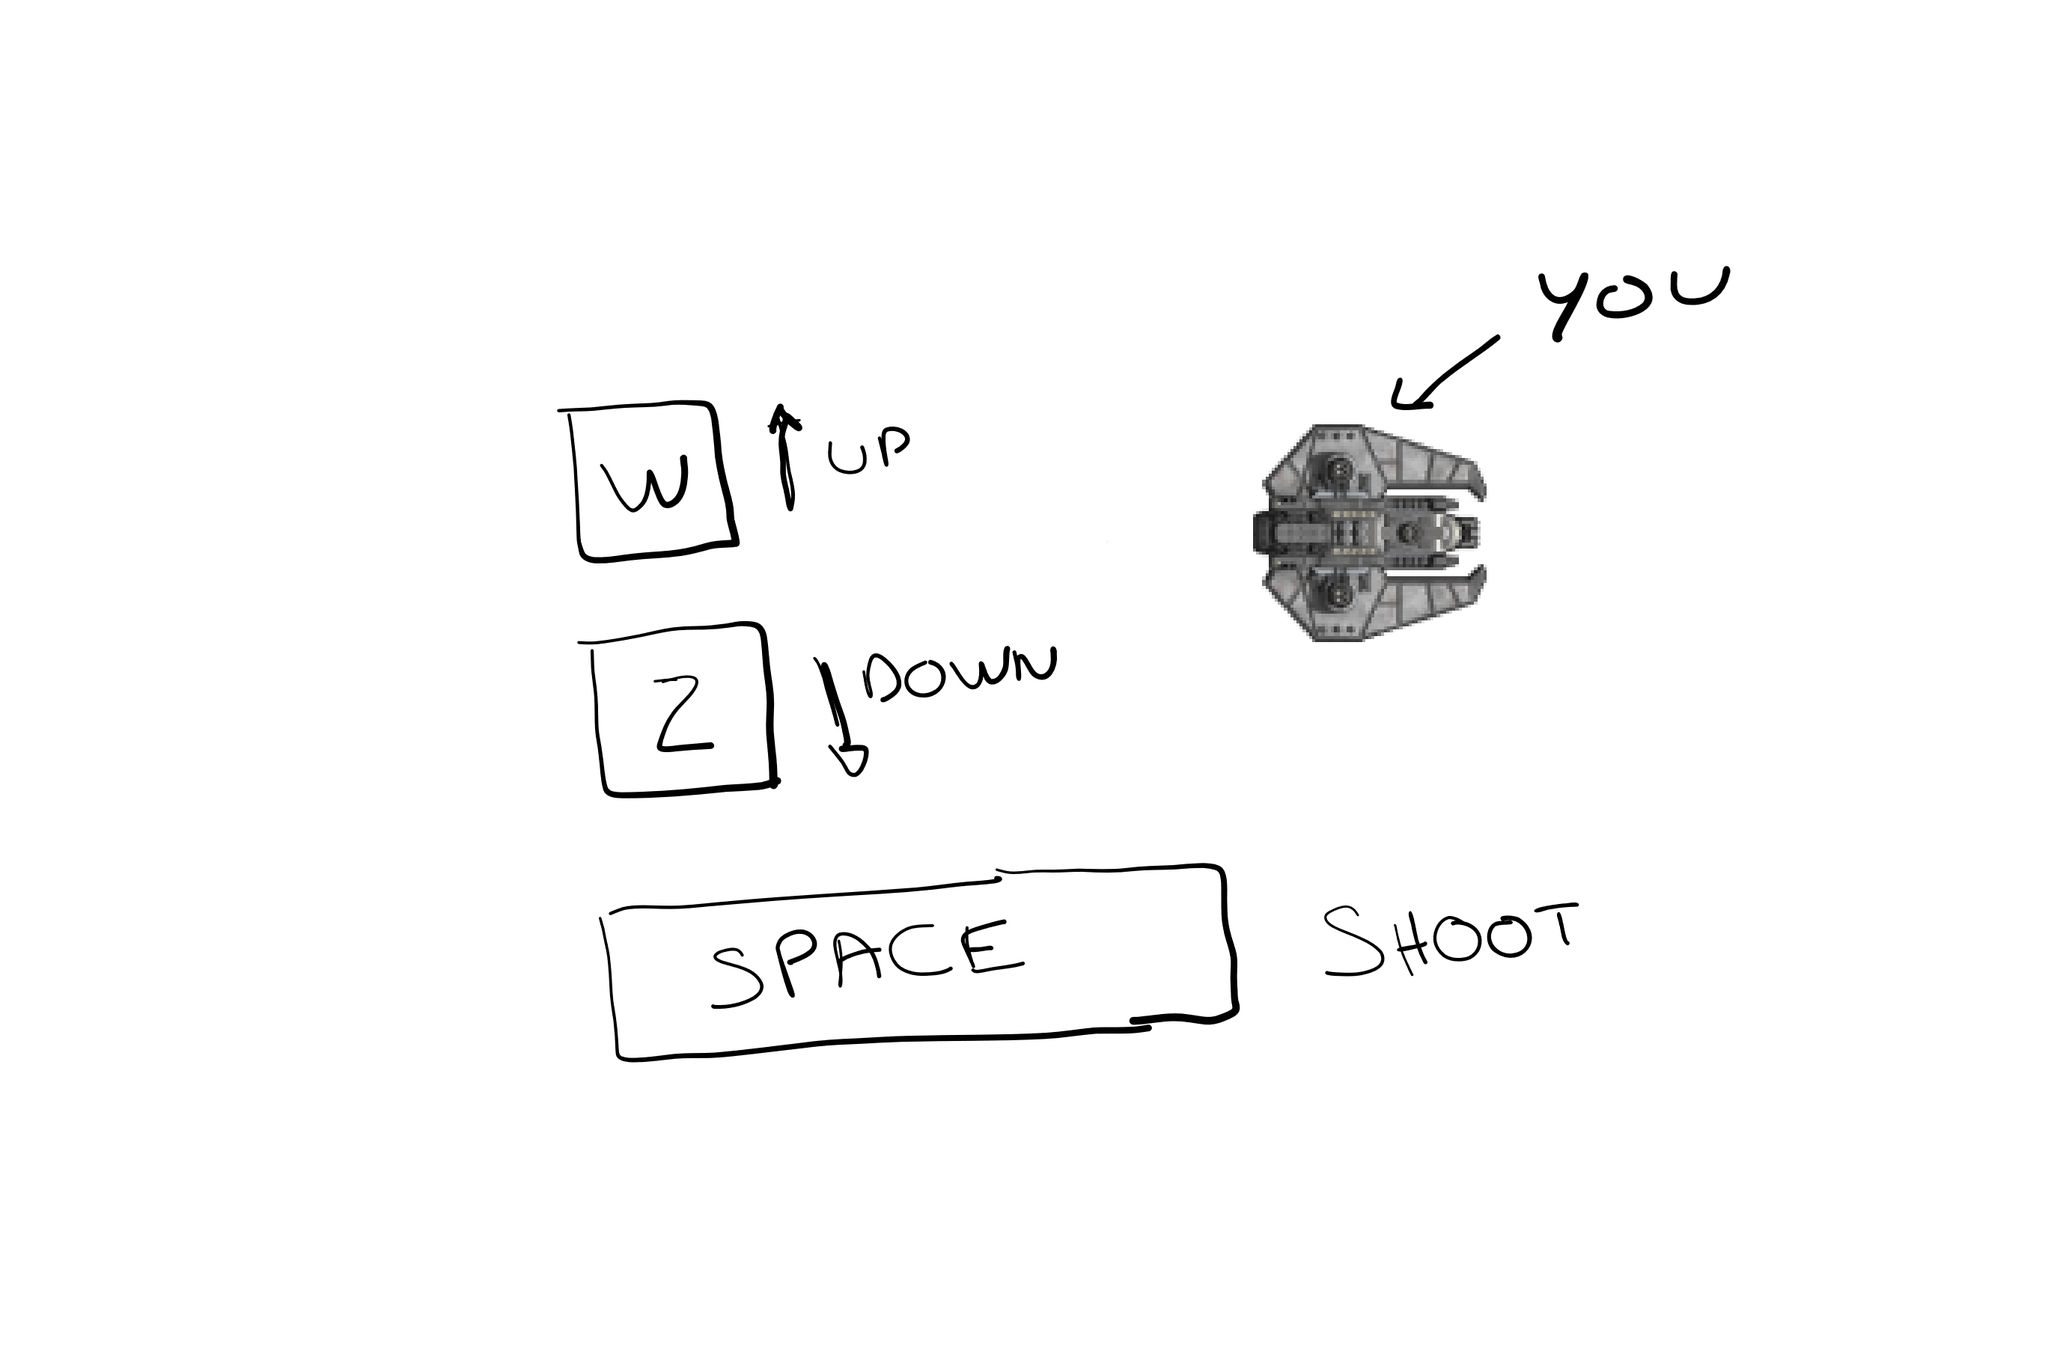 YOU
W UP
Z DOWN
SPACE SHOOT